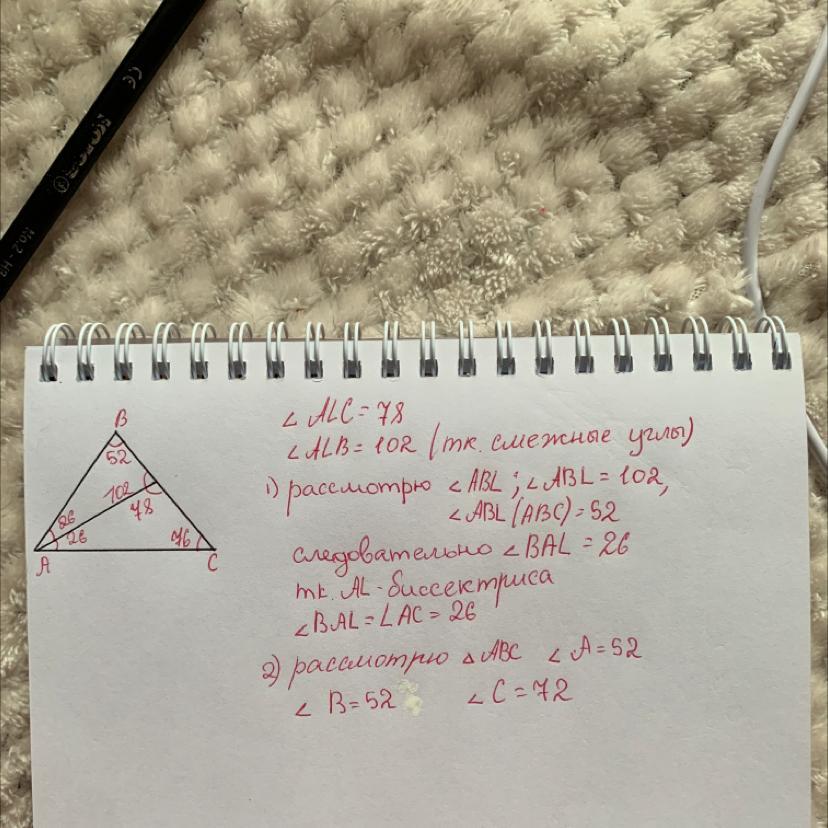 NOIOS
No.2-HB
B
52
102
78
26
26
76
A
C
∠ ALC = 78
∠ALB = 102 (тк. смежные углы)
1) рассмотрю ∠ ABL ; ∠ ABL = 102,
∠ ABL (ABC) = 52
следовательно ∠ BAL = 26
тк. AL - биссектриса
∠BAL = LAC = 26
2) рассмотрю △ ABC ∠ A = 52
∠ B = 52 ∠ C = 72